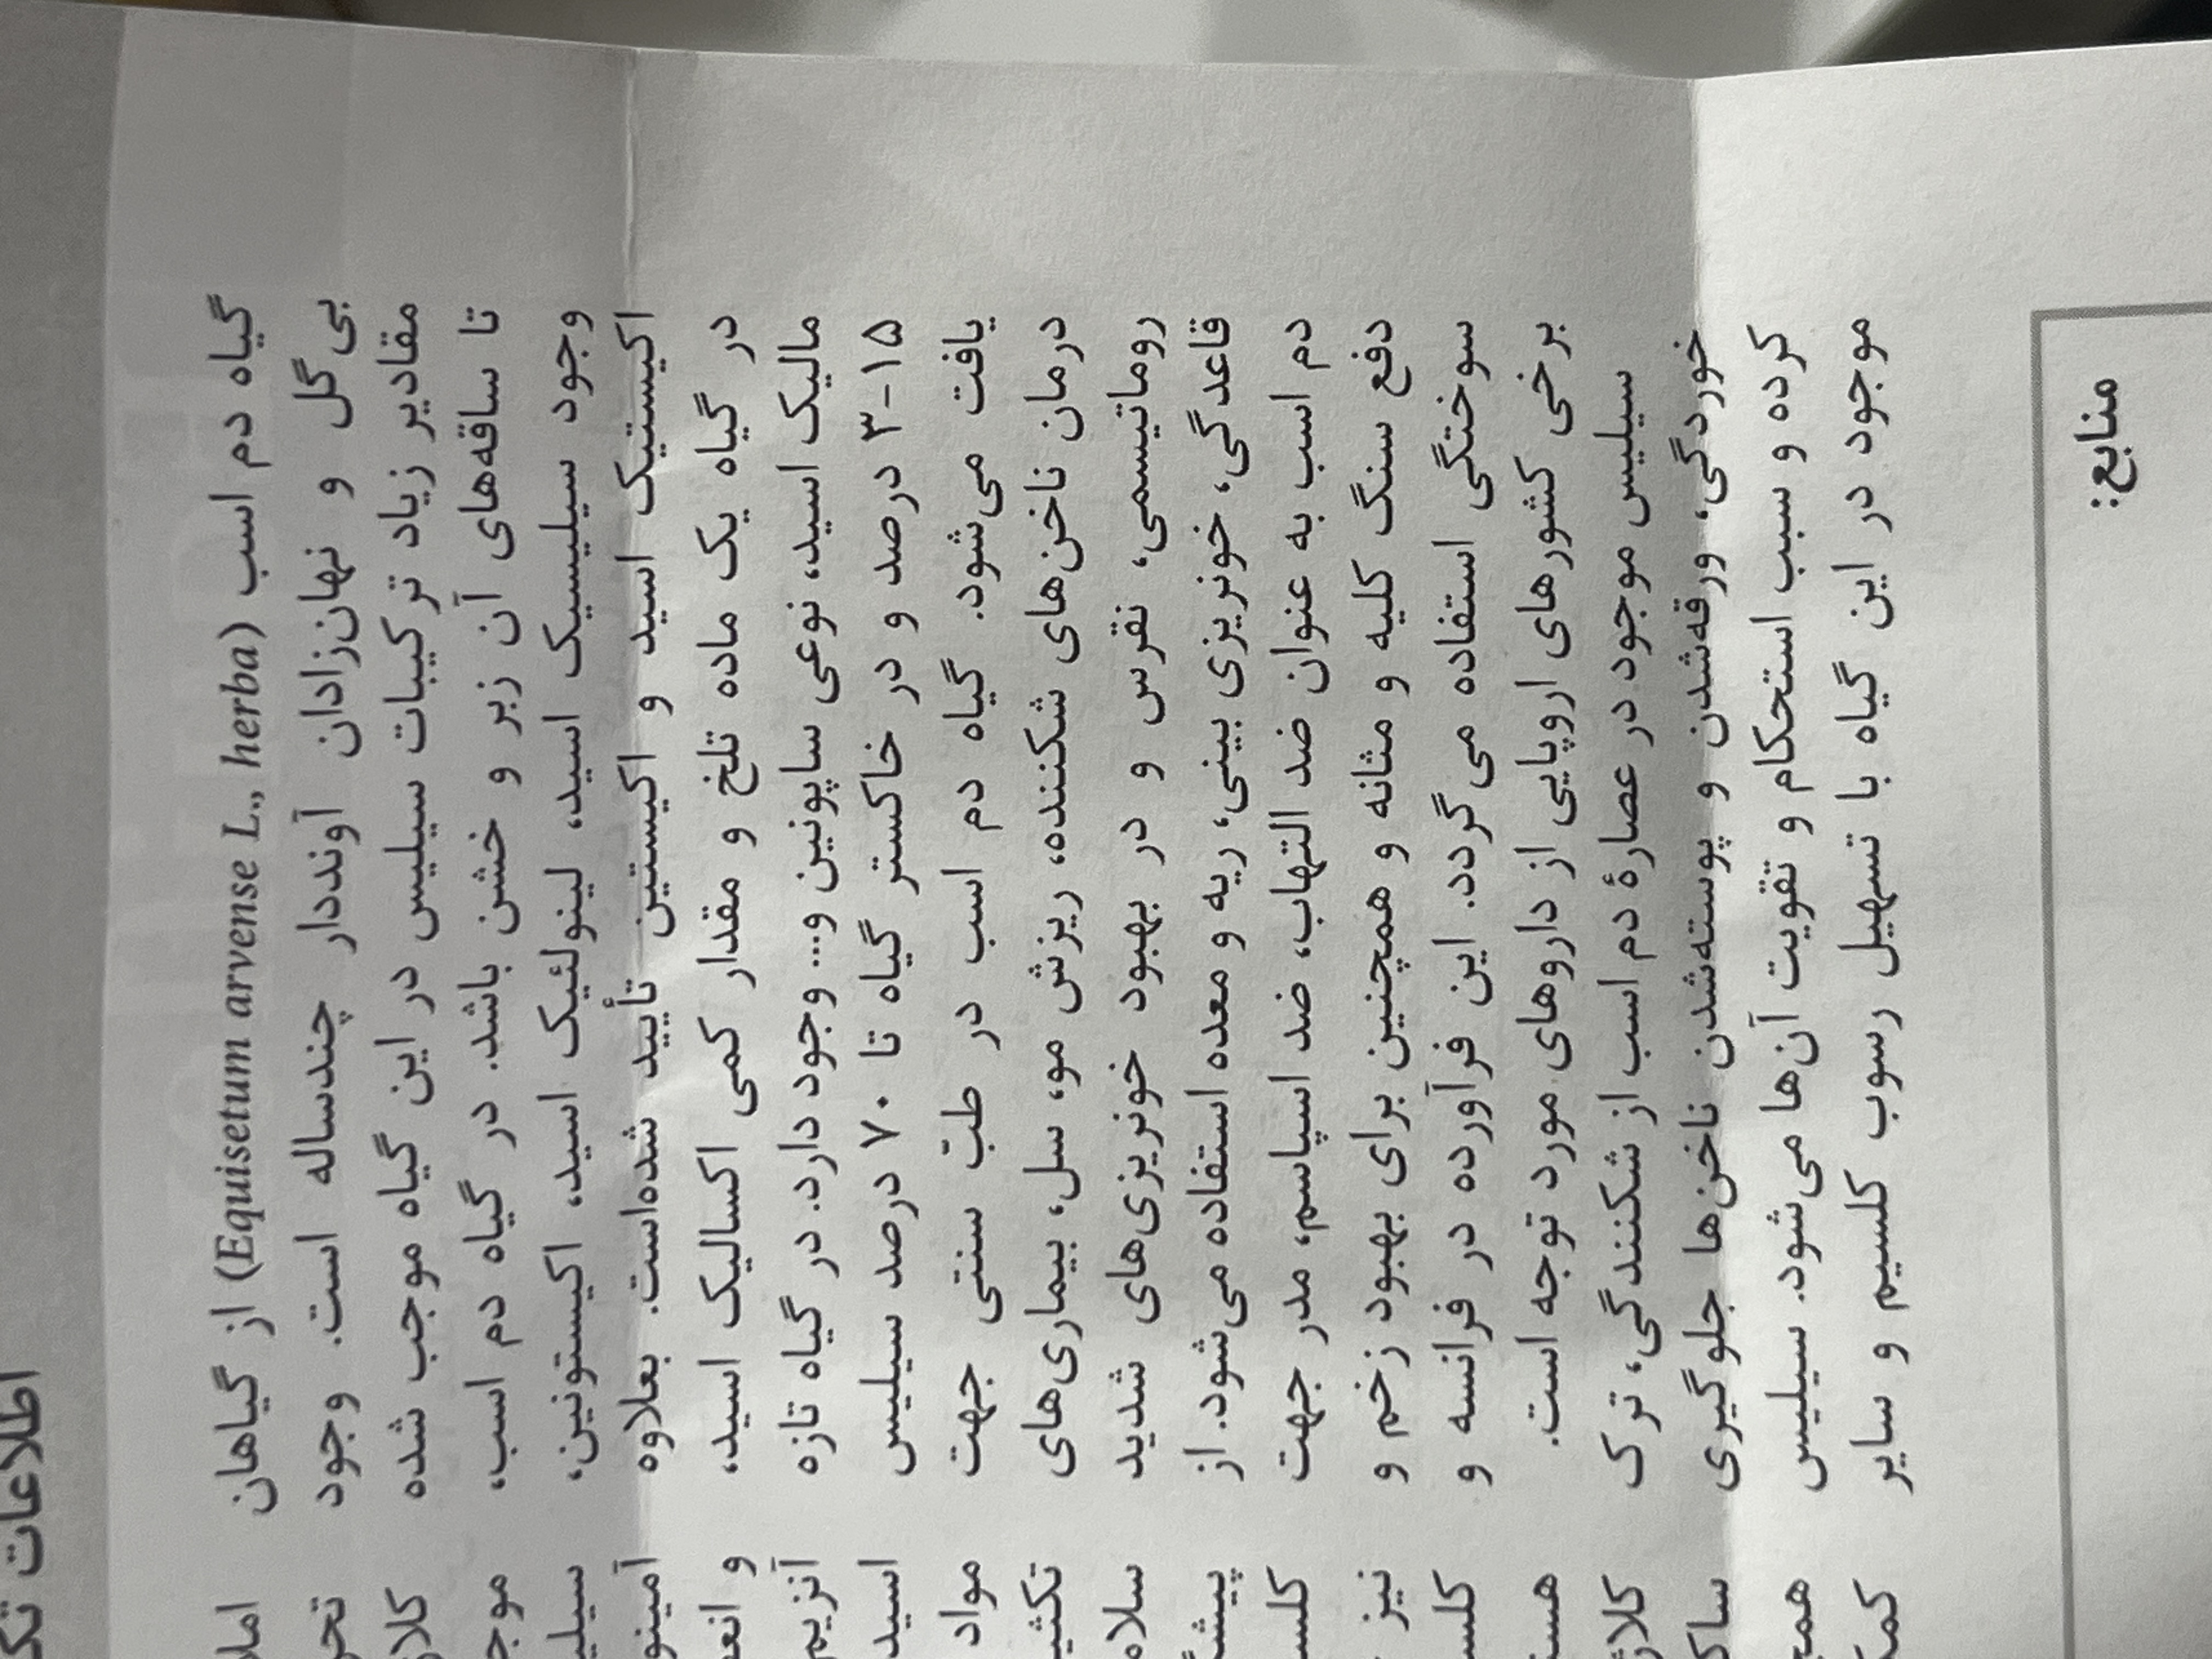 اطلاعات
گیاه دم اسب (Equisetum arvense L., herba) از گیاهان
بی‌گل و نهان‌زادان آونددار چندساله است. وجود
مقادیر زیاد ترکیبات سیلیس در این گیاه موجب شده
تا ساقه‌های آن زبر و خشن باشد. در گیاه دم اسب،
وجود سیلیسیک اسید، لینولئیک اسید، اکیستونین،
اکیستیک اسید و اکیستین تأیید شده‌است. بعلاوه
در گیاه یک ماده تلخ و مقدار کمی اکسالیک اسید،
مالیک اسید، نوعی ساپونین و... وجود دارد. در گیاه تازه
۳-۱۵ درصد و در خاکستر گیاه تا ۷۰ درصد سیلیس
یافت می‌شود. گیاه دم اسب در طبّ سنتی جهت
درمان ناخن‌های شکننده، ریزش مو، سل، بیماری‌های
روماتیسمی، نقرس و در بهبود خونریزی‌های شدید
قاعدگی، خونریزی بینی، ریه و معده استفاده می‌شود. از
دم اسب به عنوان ضد التهاب، ضد اسپاسم، مدر جهت
دفع سنگ کلیه و مثانه و همچنین برای بهبود زخم و
سوختگی استفاده می‌گردد. این فرآورده در فرانسه و
برخی کشورهای اروپایی از داروهای مورد توجه است.
سیلیس موجود در عصارهٔ دم اسب از شکنندگی، ترک
خوردگی، ورقه‌شدن و پوسته‌شدن ناخن‌ها جلوگیری
کرده و سبب استحکام و تقویت آن‌ها می‌شود. سیلیس
موجود در این گیاه با تسهیل رسوب کلسیم و سایر
و
آنزیم
اسید
مواد
نیز
منابع: